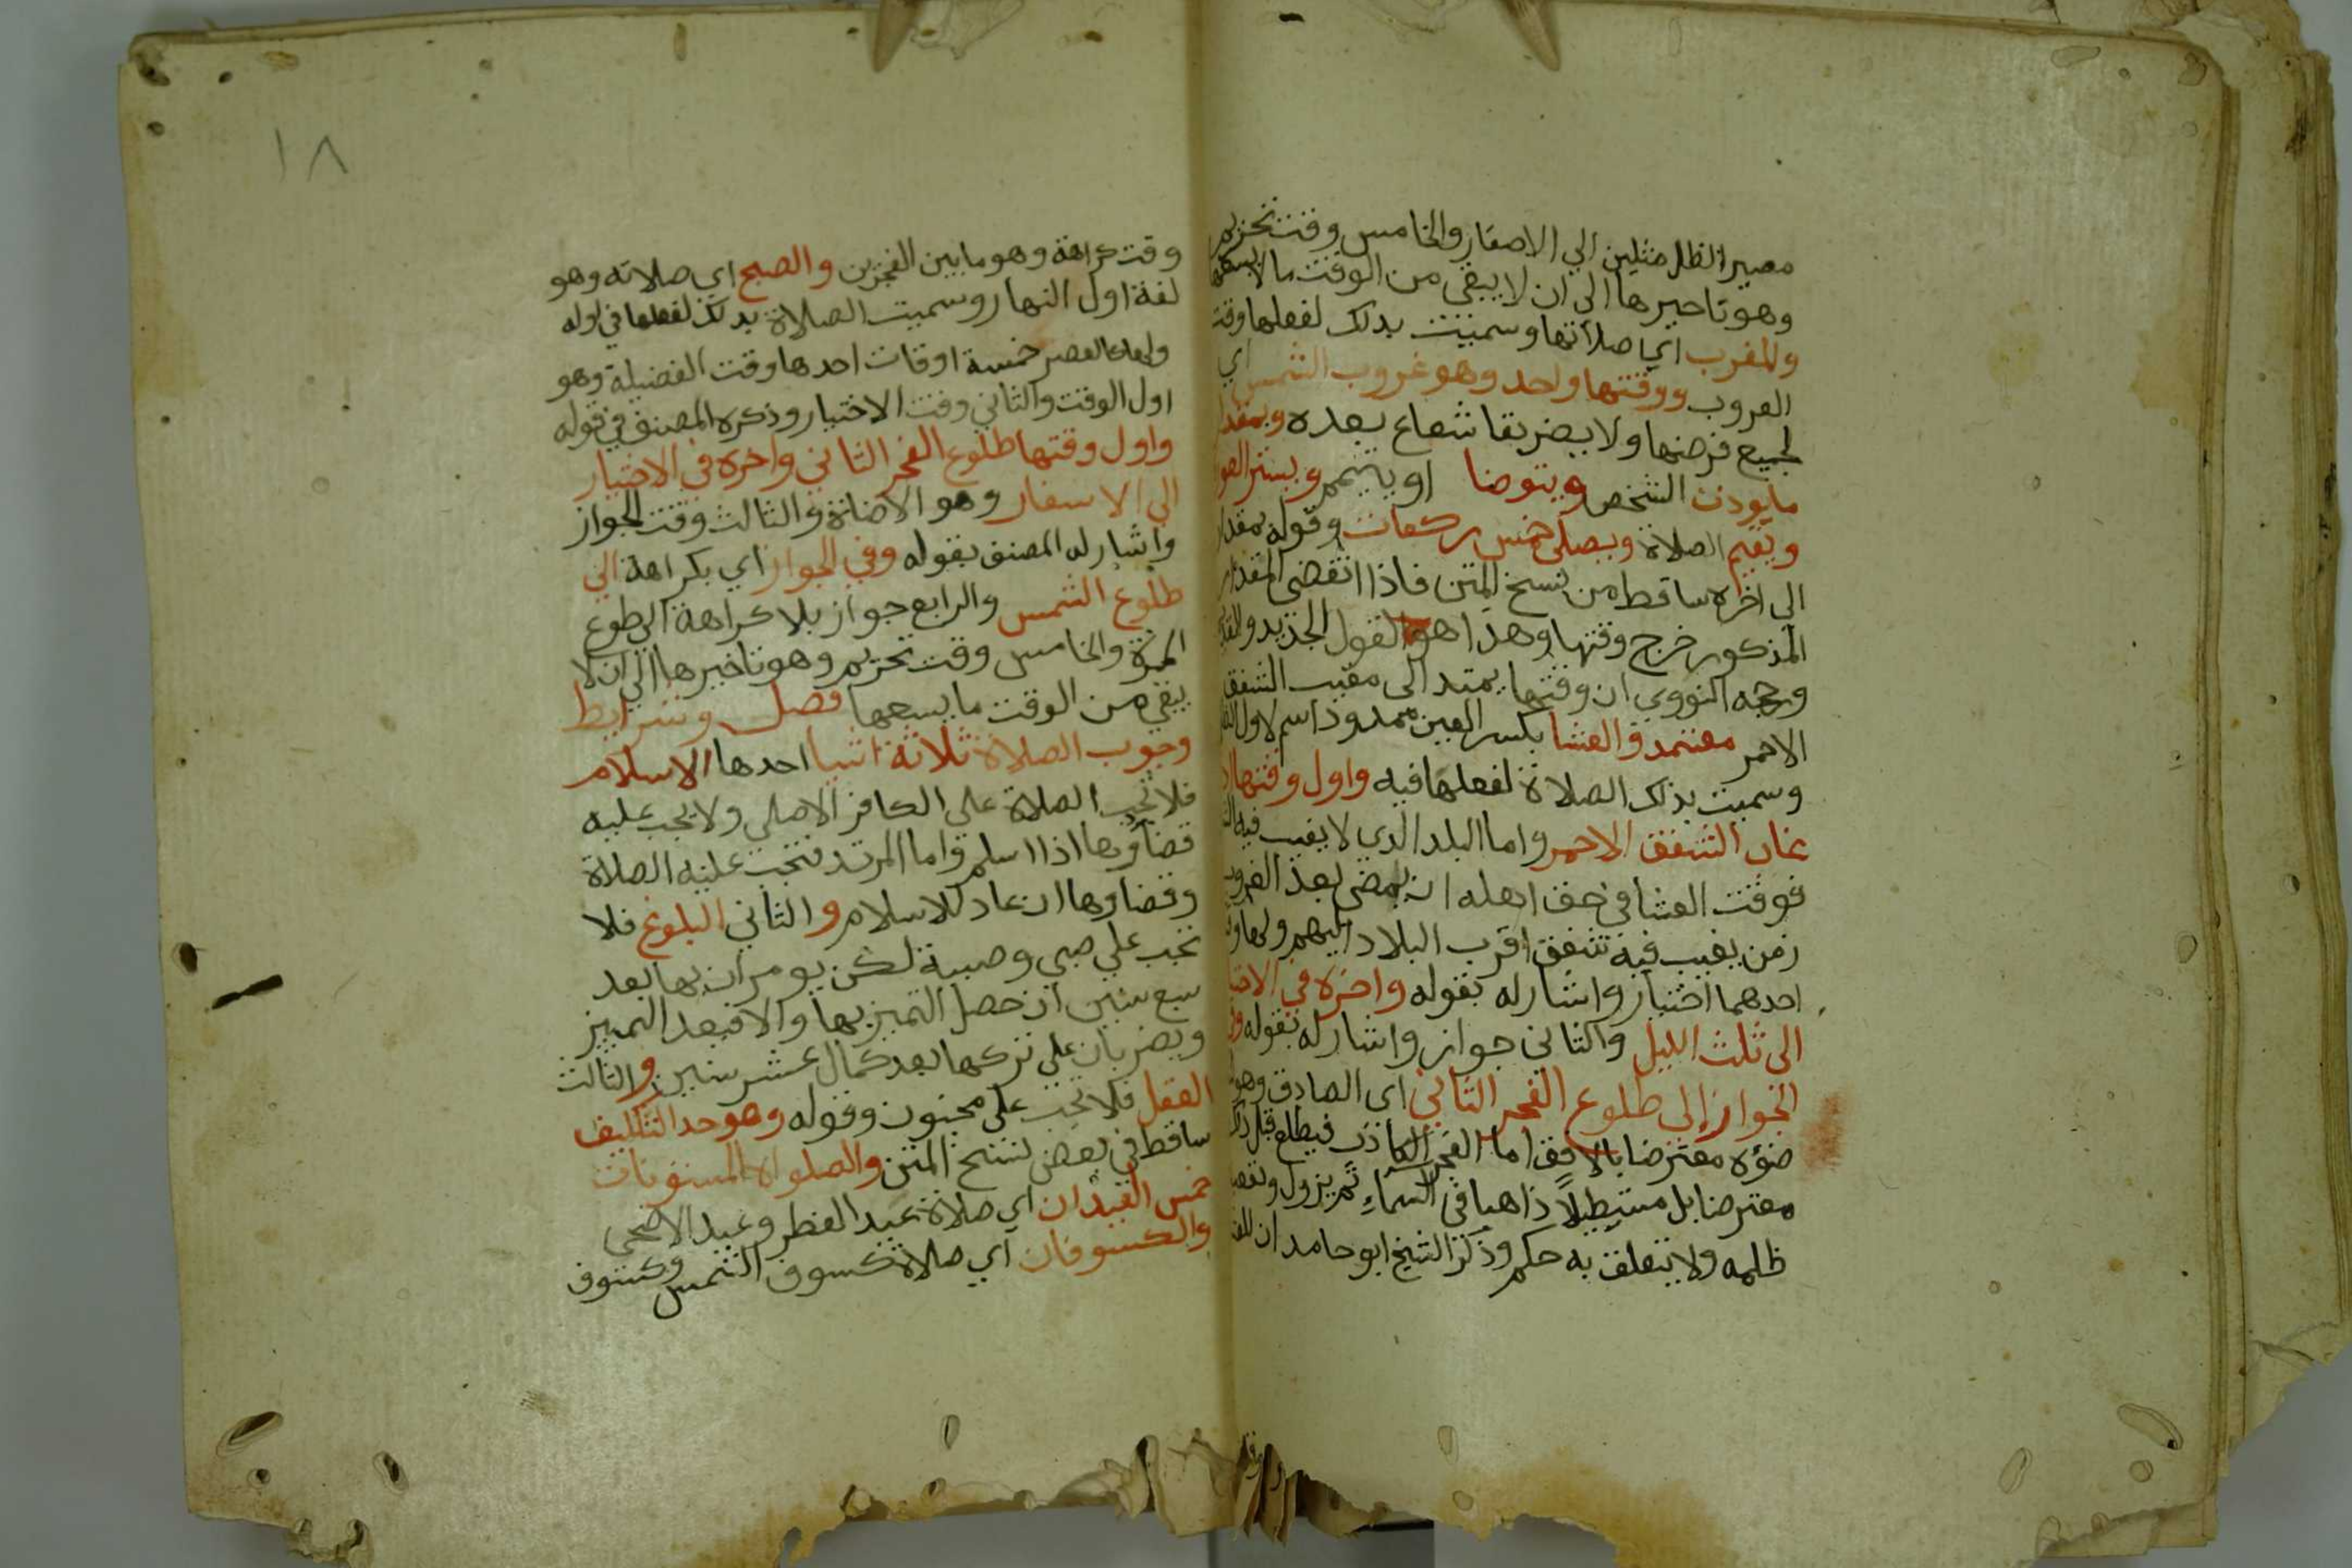 مصير الظل مثلين الي الاصفار والخامس وقت تحريم
وهو تاخيرها الي ان لا يبقي من الوقت ما لا يسعها
والمغرب اي صلاتها وسميت بدلك لفعلها وقت
الغروب ووقتها واحد وهو غروب الشمس اي
لجميع قرصها ولا يضر بقا شعاع بعده وبمقدار
مايودن الشخص ويتوضا او يتيمم ويستر العو
ويقيم الصلاة ويصلي خمس ركعات وقوله بمقدار
الي اخره ساقط من نسخ المتن فاذا انقضي المقدار
المذكور خرج وقتها وهذا هو القول الجديد والقد
ورجحه النووي ان وقتها يمتد الي مغيب الشفق
الاحمر معتمد والعشا بكسر العين ممدود اسم لاول
وسميت بذلك الصلاة لفعلها فيه واول وقتها اذا
غاب الشفق الاحمر واما البلد الدي لا يغيب فيه
فوقت العشا في حق اهله ان يمضي بعد الغروب
زمن يغيب فيه شفق اقرب البلاد اليهم ولها وقتا
احدهما اختيار واشار له بقوله واخره في الاختيا
الي ثلث الليل والثاني جواز واشار له بقوله وفي
الجواز إلي طلوع الفجر الثاني اي الصادق وهو
ضؤه معترضا بالافق اما الفجر الكاذب فيطلع قبل ذلك
معترضا بل مستطيلاً ذاهبا في السماء ثم يزول وتعقبه
ظلمه ولا يتعلق به حكم وذكر الشيخ ابو حامد ان للعشا
١٨
وقت كراهة وهو ما بين الفجرين والصبح اي صلاته وهو
لغة اول النهار وسميت الصلاة بدلك لفعلها في اوله
ولها كالعصر خمسة اوقات احدها وقت الفضيلة وهو
اول الوقت والثاني وقت الاختيار وذكره المصنف في قوله
واول وقتها طلوع الفجر الثاني واخره في الاختيار
الي الاسفار وهو الاضائة والثالث وقت الجواز
واشار له المصنف بقوله وفي الجواز اي بكراهة الي
طلوع الشمس والرابع جواز بلا كراهة الي طلوع
الحمرة والخامس وقت تحريم وهو تاخيرها الي ان لا
يبقي من الوقت ما يسعها فصل وشرايط
وجوب الصلاة ثلاثة اشيا احدها الاسلام
فلا تجب الصلاة علي الكافر الاصلي ولا يجب عليه
قضاؤها اذا اسلم واما المرتد فتجب عليه الصلاة
وقضاوها ان عاد للاسلام والثاني البلوغ فلا
تجب علي صبي وصبية لكن يومران بها بعد
سبع سنين ان حصل التميز بها والا فبعد التمييز
ويضربان علي تركها بعد كمال عشر سنين والثالث
العقل فلا تجب علي مجنون وقوله وهو حد التكليف
ساقط في بعض نسخ المتن والصلواة المسنونات
خمس العيدان اي صلاة عيد الفطر وعيد الاضحي
والكسوفان اي صلاة كسوف الشمس وكسوف